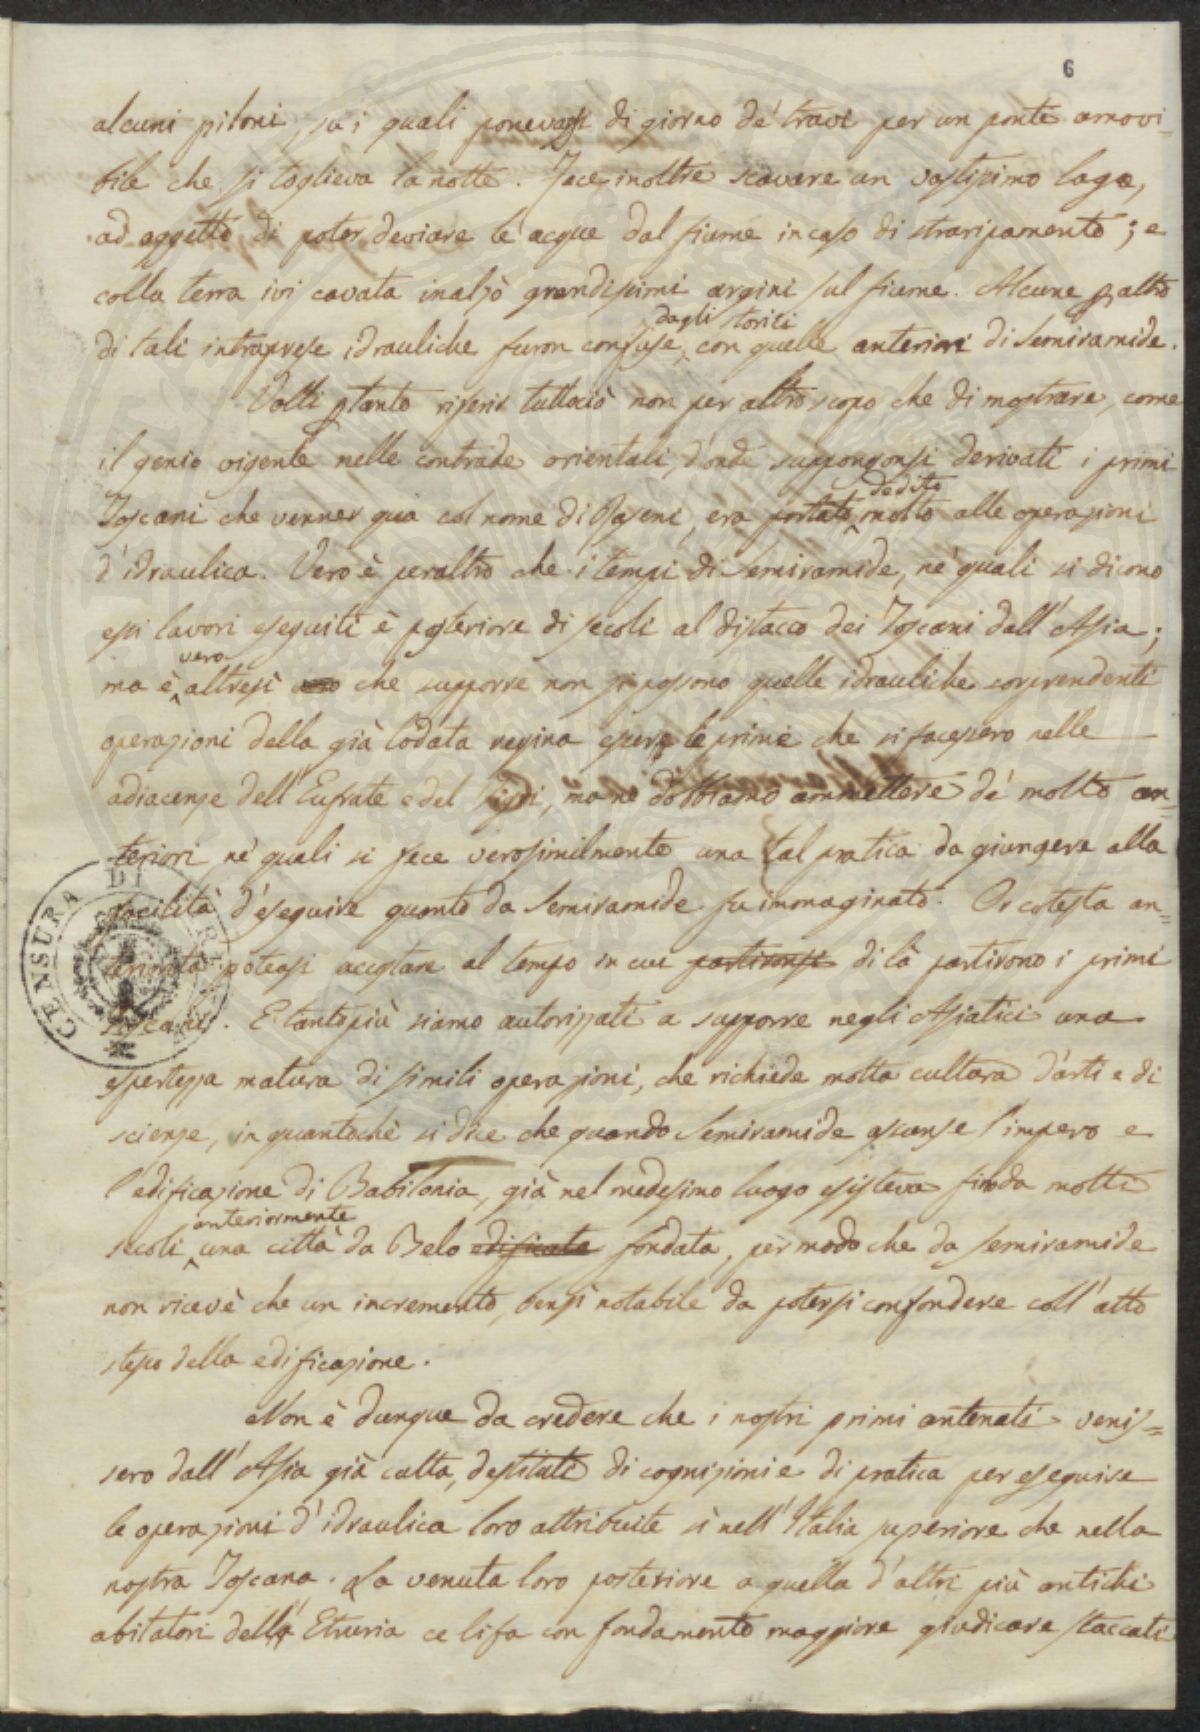 6
alcuni piloni, su i quali ponevasi di giorno de' travi per un ponte amovi-
bile che si toglieva la notte. Fece inoltre scavare un vastissimo lago,
ad oggetto di poter deviare le acque dal fiume in caso di straripamento; e
colla terra ivi cavata inalzò grandissimi argini sul fiume. Alcune peraltro
dagli storici
di tali intraprese idrauliche furon confuse, con quelle anteriori di Semiramide.
Volli pertanto riferir tuttociò non per altro scopo che di mostrare, come
il genio vigente nelle contrade orientali d'onde suppongonsi derivati i primi
dedito
Toscani che venner qua col nome di Raseni, era portato molto alle operazioni
d'idraulica. Vero è peraltro che i tempi di Semiramide, ne' quali si dicono
essi lavori eseguiti è posteriore di secoli al distacco dei Toscani dall'Asia;
vero
ma è altresì vero che supporre non si possono quelle idrauliche sorprendenti
operazioni della già lodata regina essere le prime che si facessero nelle
adiacenze dell'Eufrate e del Tigri, ma ne dobbiamo ammettere de' molto an=
teriori ne' quali si fece verosimilmente una tal pratica da giungere alla
facilità d'eseguire quanto da Semiramide fu immaginato. Or cotesta an=
teriorità potrassi accettare al tempo in cui partironsi di là partirono i primi
Toscani. E tantopiù siamo autorizzati a supporre negli Asiatici una
espertezza matura di simili operazioni, che richiede molta cultura d'arti e di
scienze, in quantochè si dice che quando Semiramide assunse l'impero e
l'edificazione di Babilonia, già nel medesimo luogo esisteva fin da molti
anteriormente
secoli una città da Belo edificata fondata, per modo che da Semiramide
non ricevè che un incremento, bensì notabile da potersi confondere coll'atto
stesso della edificazione.
Non è dunque da credere che i nostri primi antenati venis=
sero dall'Asia già culta, destituti di cognizioni e di pratica per eseguire
le operazioni d'idraulica loro attribuite sì nell'Italia superiore che nella
nostra Toscana. La venuta loro posteriore a quella d'altri più antichi
abitatori dell'Etruria ce li fa con fondamento maggiore giudicare staccati
CENSURA DI